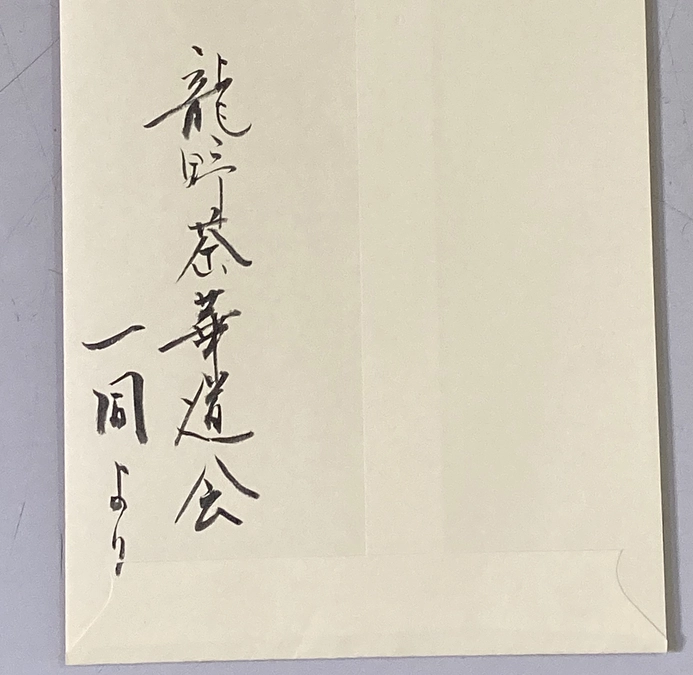 龍野茶華道会
一同より